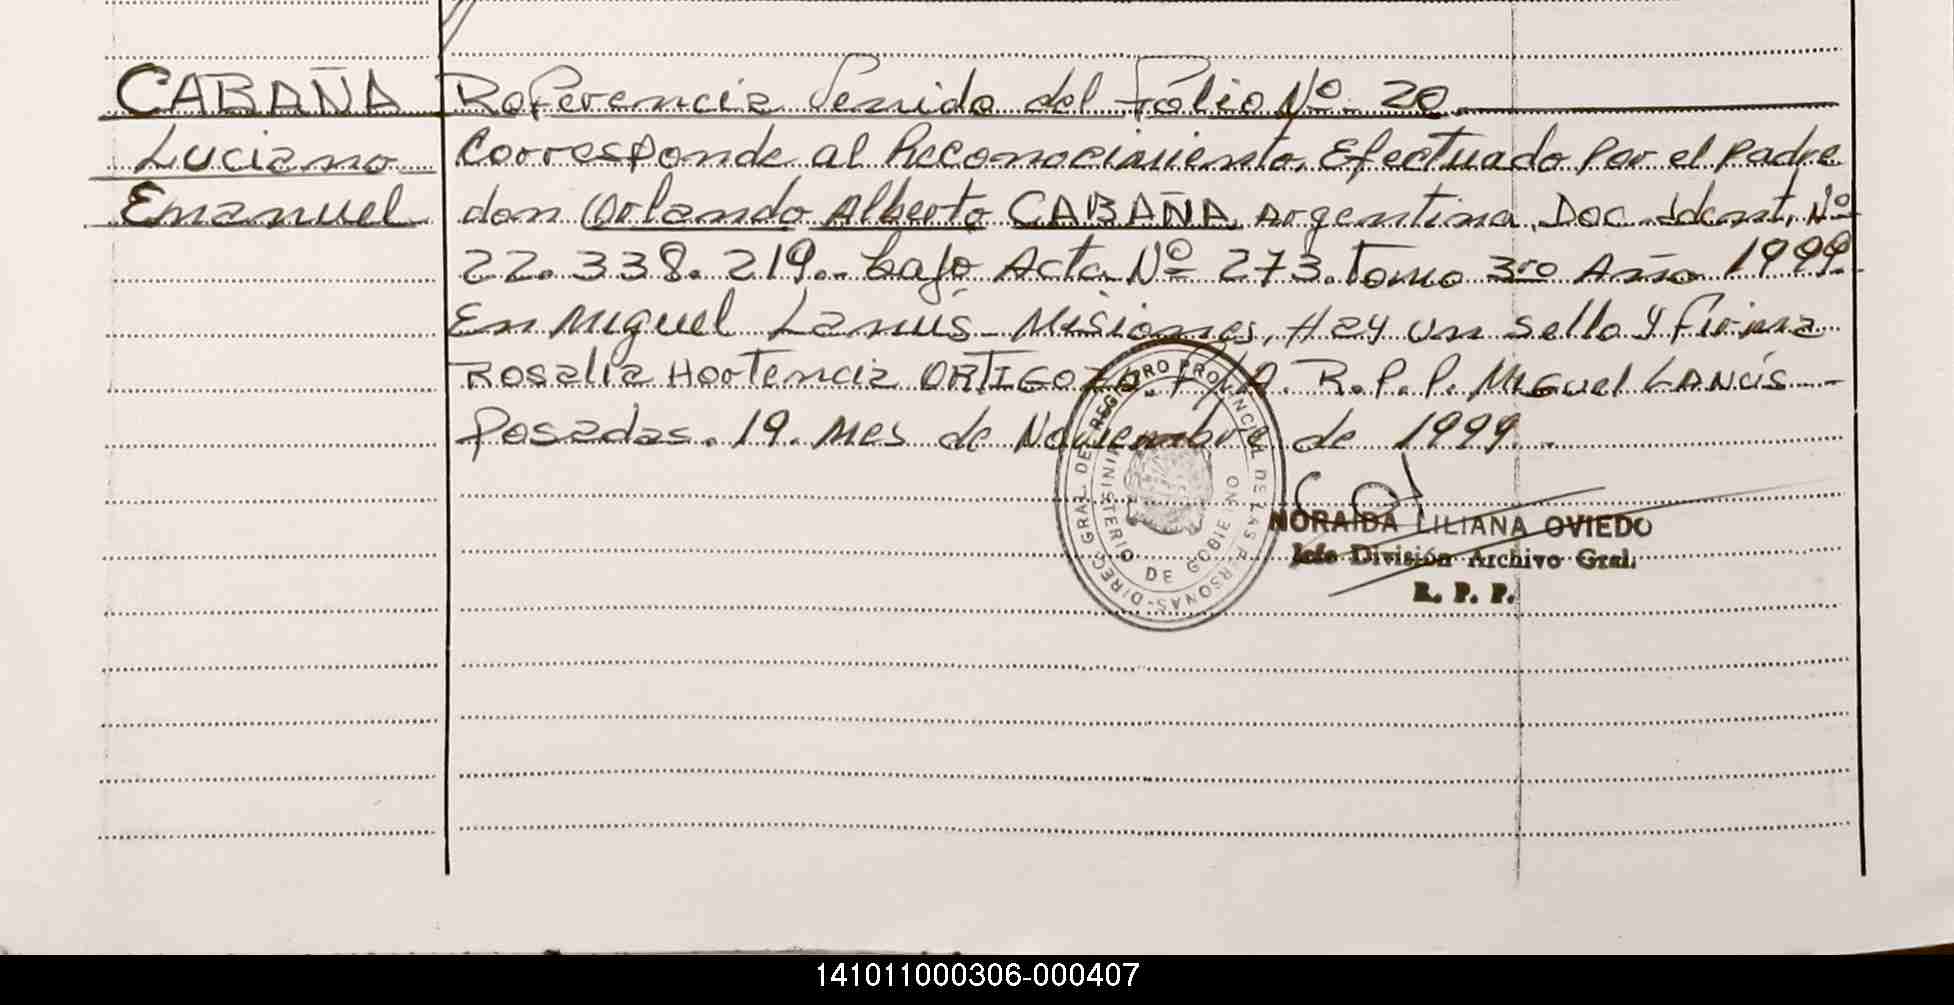 CABAÑA Referencia Venida del fólio Nº 20
Luciano Corresponde al Reconocimiento, Efectuado Por el padre
Emanuel don Orlando Alberto CABAÑA, Argentina, Doc. Ident, Nº
22.338.219.- bajo Acta Nº 273. Tomo 3ro Año 1999.
En Miguel Lanús - Misiones, Hay un sello y firma
Rosalia Hortencia ORTIGOZA R.P.P. Miguel LANús -
Posadas. 19. Mes de Noviembre de 1999. -
DIREC. GRAL. DEL REGISTRO PROVINCIAL DE LAS PERSONAS-
MINISTERIO DE GOBIERNO
NORAIDA LILIANA OVIEDO
Jefe División Archivo Gral.
R. P. P.
141011000306-000407